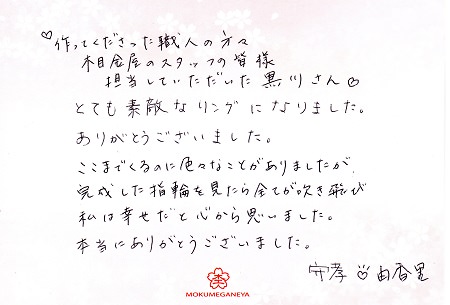 ♡作ってくださった職人の方々
杢目金屋のスタッフの皆様
担当していただいた黒川さん♡
とても素敵なリングになりました。
ありがとうございました。
ここまでくるのに色々なことがありましたが、
完成した指輪を見たら全てが吹き飛び
私は幸せだと心から思いました。
本当にありがとうございました。
守孝♡由香里
MOKUMEGANEYA